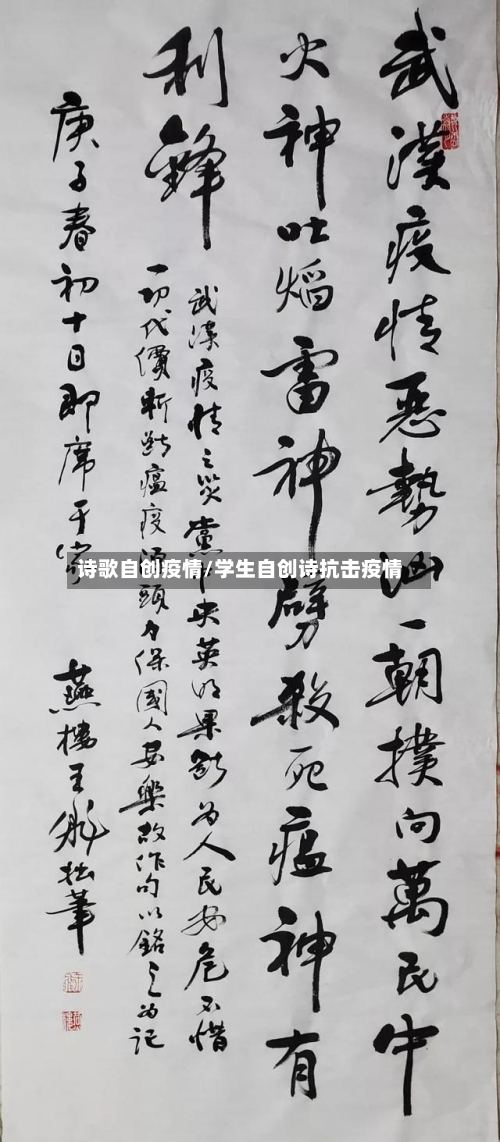 武漢疫情惡勢汹一朝撲向萬民中
火神吐焰雷神劈殺死瘟神有
利鋒
武漢疫情之災黨中央英明果斷为人民安危不惜
一切代價斬斷瘟疫源頭力保國人安樂故作句以銘之为記
庚子春初十日即席于
燕樓王 拙筆
诗歌自创疫情/学生自创诗抗击疫情